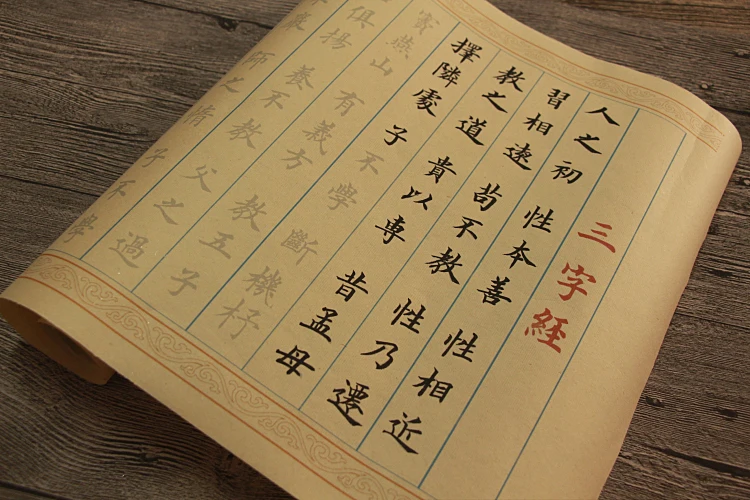 三字經
人之初 性本善 性相近
習相遠 苟不教 性乃遷
教之道 貴以専 昔孟母
擇隣處 子不學 斷機杼
竇燕山 有義方 教五子
俱揚 養不教 父之過
嚴 師之惰 子不學